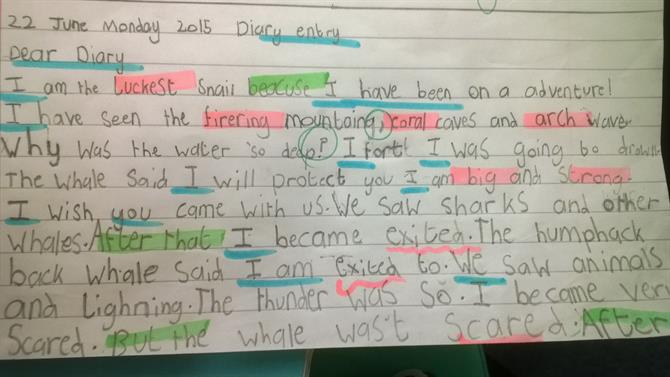 22 June Monday 2015 Diary entry
Dear Diary
I am the Luckest Snail beacuse I have been on a adventure!
I have seen the firering mountaing, coral caves and arch waver
Why was the water so deep? I fort I was going to drownd
The whale said I will protect you I am big and strong.
I wish, you came with us. We saw sharks and other
whales. After that I became exited. The humphack
back whale said I am exited to. We saw animals
and Lighning. The thunder was so. I became very
Scared. But the whale was't scared. After